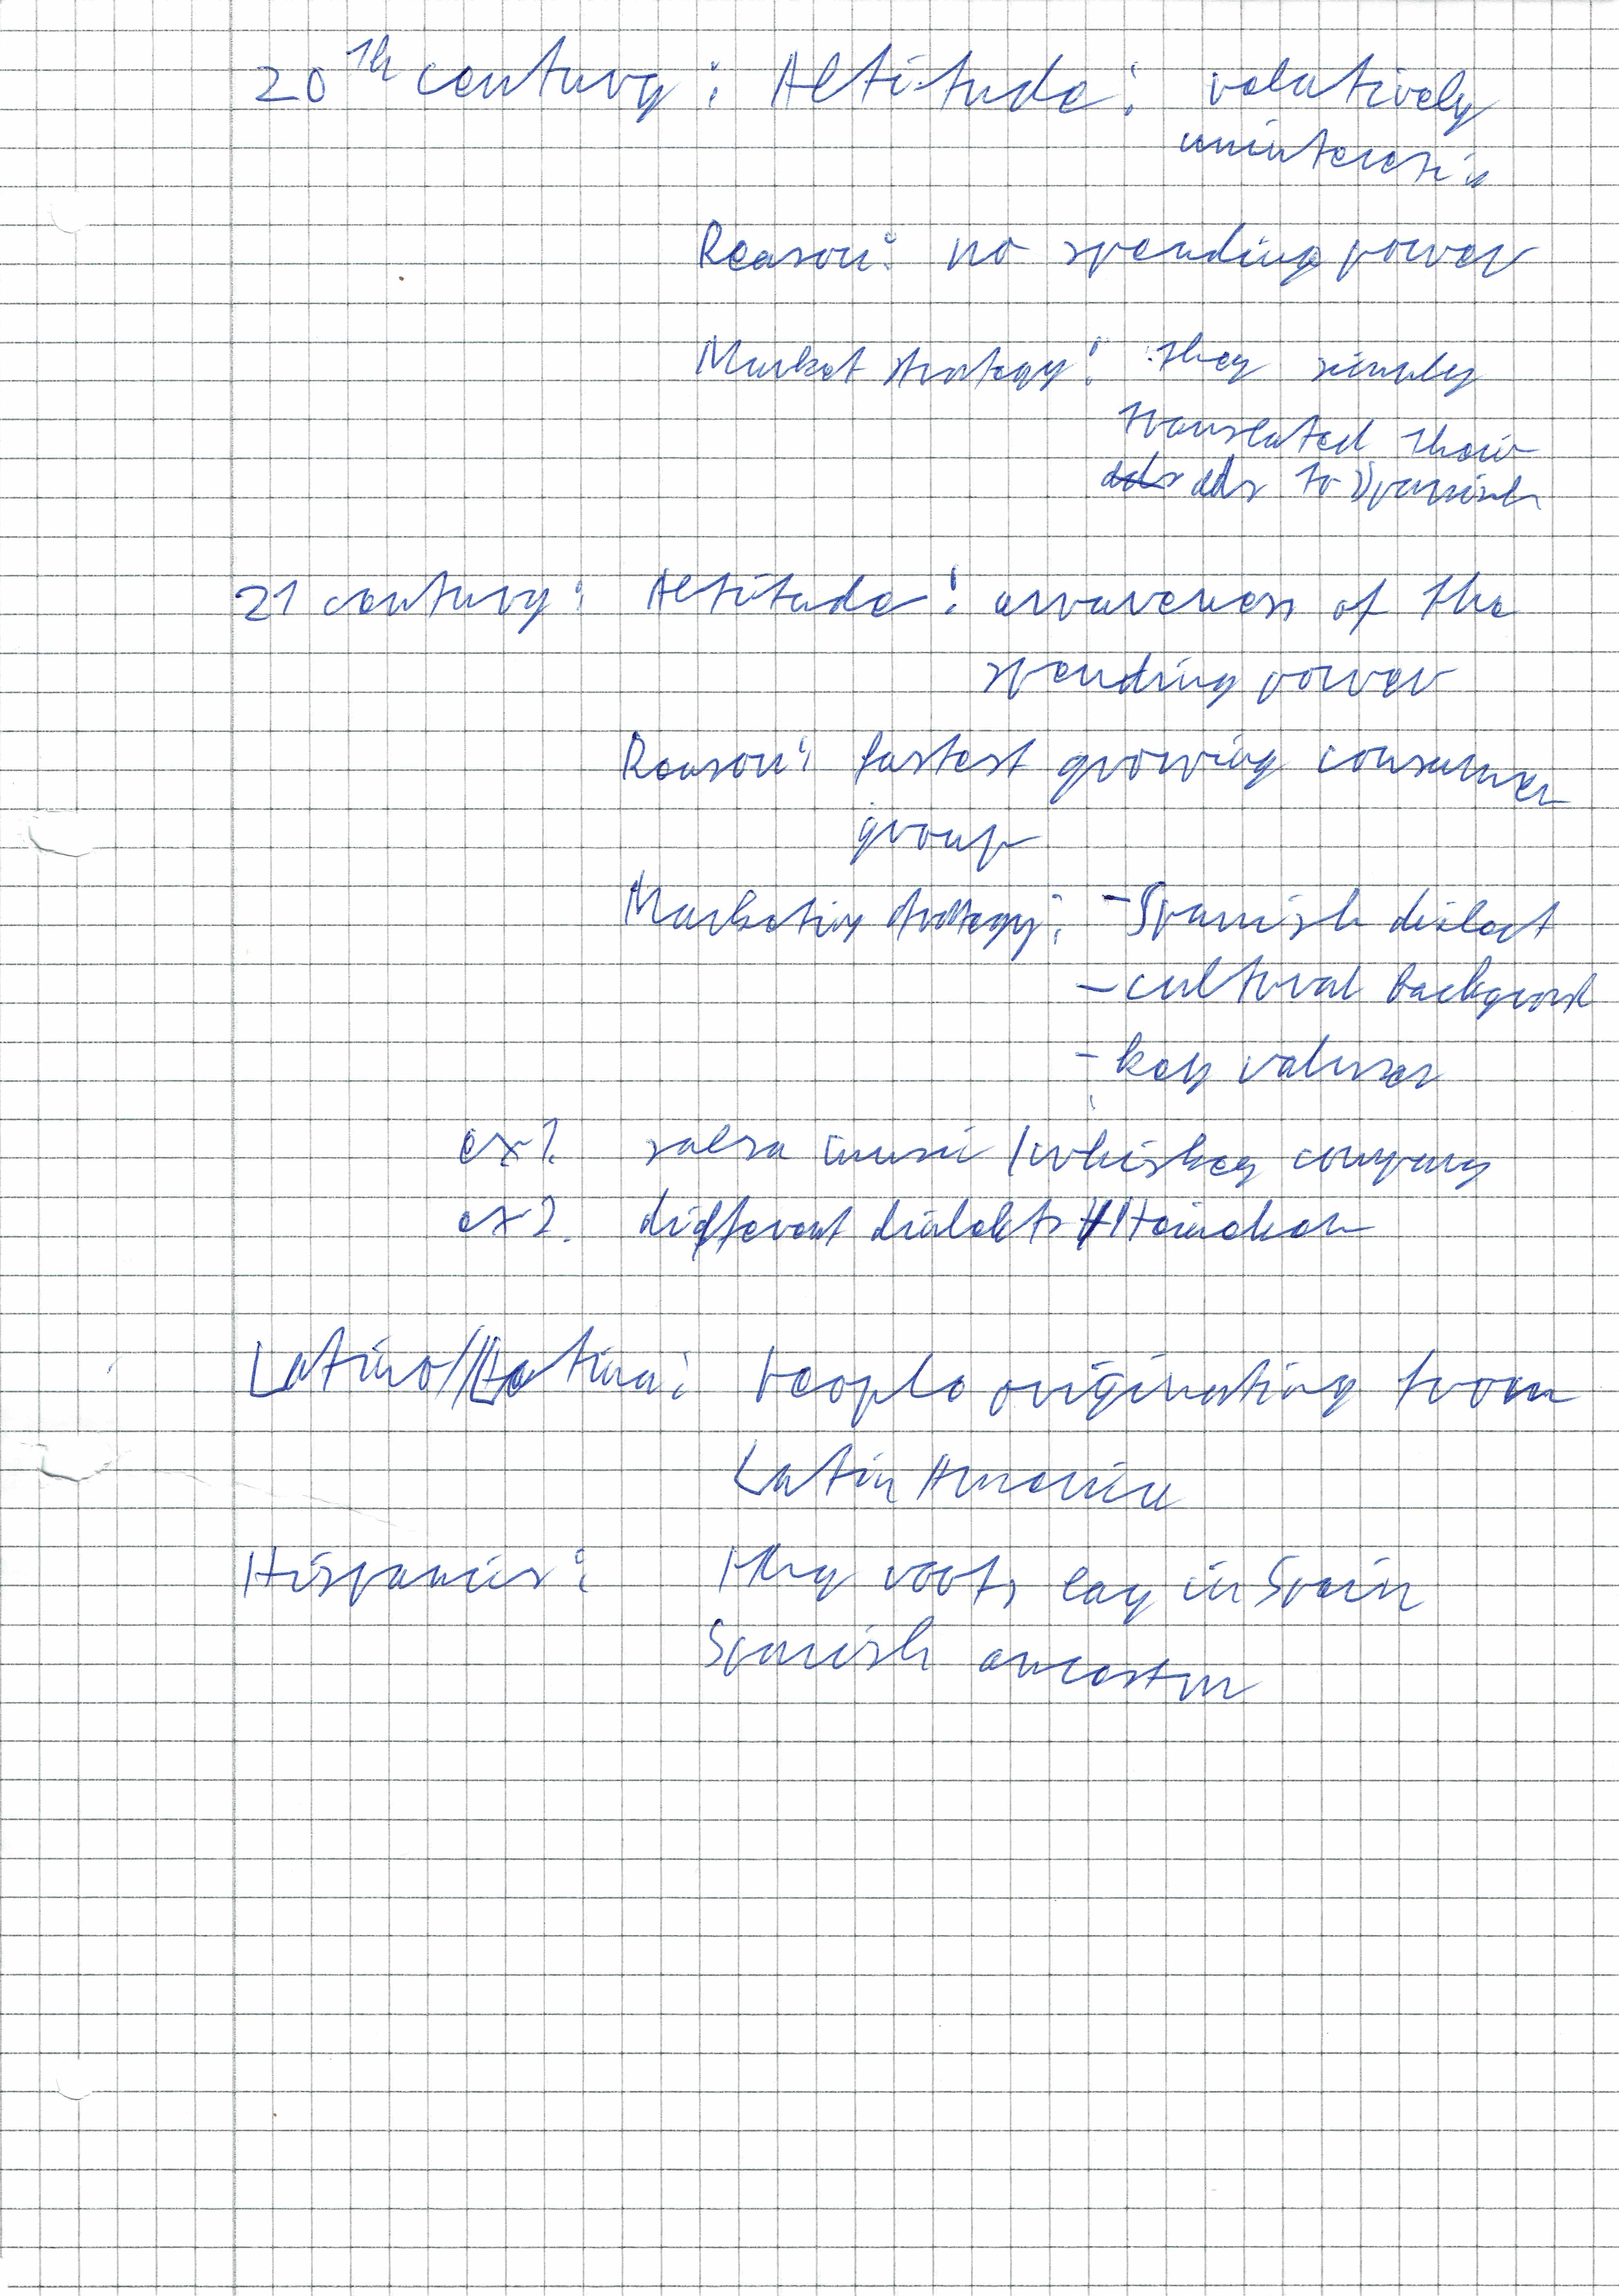 20th century: Attitude: relatively
uninteresti
Reason: no spending power
Market strategy: they simply
translated their
ads ads to Spanish
21 century: Attitude: awareness of the
spending power
Reason: fastest growing consumer
group
Marketing strategy: - Spanish dialect
- cultural backgrond
- key values
ex1. salsa music / whiskey company
ex2. different dialekts / Heineken
Latino/Latina: People originating from
Latin America
Hispanics: roots lay in Spain
Spanish ancestry